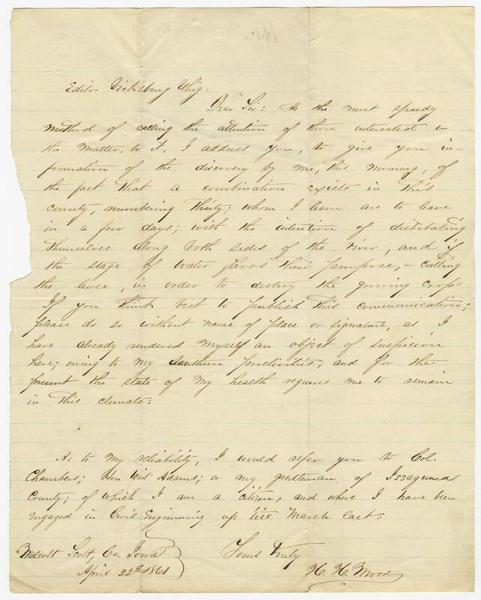 Editor Vicksburg Whig
Dear Sir: As the most speedy
method of calling the attention of those interested in
the matter, to it, I address you, to give you in-
formation of the discovery by me, this morning, of
the fact that a combination exists in this
county, numbering Thirty; whom I learn are to leave
in a few days; with the intention of distributing
themselves along both sides of the river, and if
the stage of water favors their purpose, - cutting
the levee, in order to destroy the growing crops.
If you think best to publish this communication;
please do so without name of place or signature, as I
have already rendered myself an object of suspicion
here; owing to my Southern proclivities, and for the
present the state of my health requires me to remain
in this climate.
As to my reliability, I would refer you to Col.
Chambers; Hon Wirt Adams; or any gentleman of Issaquena
County; of which I am a citizen, and where I have been
engaged in Civil Engineering up till March last.
Walcott Scott, Co. Iowa
April 22nd 1861
Yours Truly
H. H. Wood